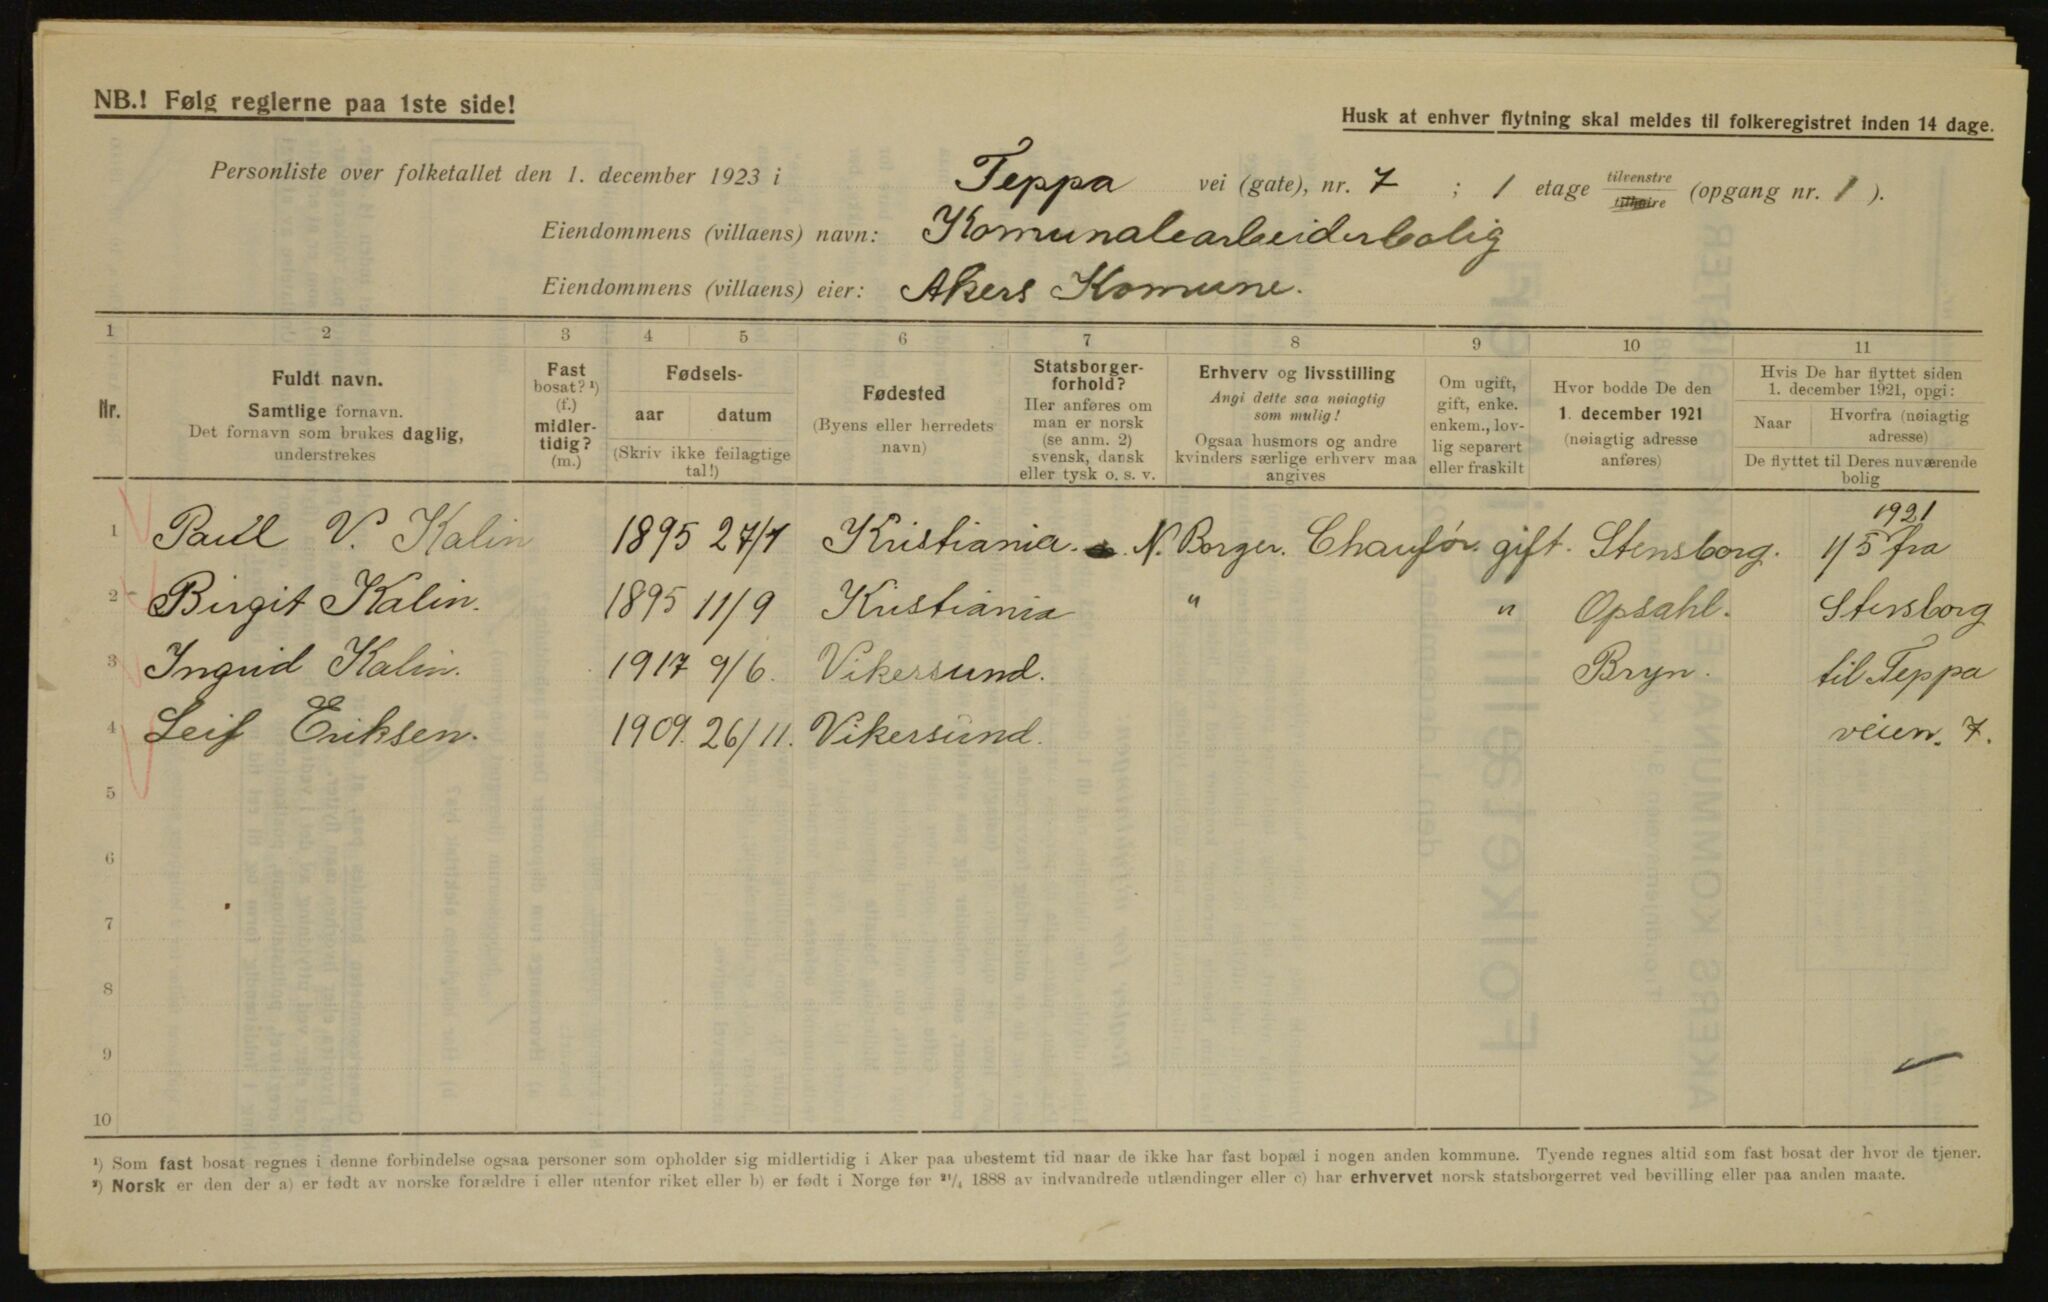 NB.! Følg reglerne paa 1ste side!
Husk at enhver flytning skal meldes til folkeregistret inden 14 dage.
Personliste over folketallet den 1. december 1923 i Teppa vei (gate), nr. 7 ; 1 etage tilvenstre tilhøire (opgang nr. 1 ).
Eiendommens (villaens) navn: Komunalearbeiderbolig
Eiendommens (villaens) eier: Akers Komune.
1 2 3 4 5 6 7 8 9 10 11
Nr.
Fuldt navn.
Samtlige fornavn.
Det fornavn som brukes daglig,
understrekes
Fast
bosat? ¹)
(f.)
midler-
tidig?
(m.)
Fødsels-
aar datum
(Skriv ikke feilagtige
tal!)
Fødested
(Byens eller herredets
navn)
Statsborger-
forhold?
Her anføres om
man er norsk
(se anm. 2)
svensk, dansk
eller tysk o. s. v.
Erhverv og livsstilling
Angi dette saa nøiagtig
som mulig!
Ogsaa husmors og andre
kvinders særlige erhverv maa
angives
Om ugift,
gift, enke.
enkem., lov-
lig separert
eller fraskilt
Hvor bodde De den
1. december 1921
(nøiagtig adresse
anføres)
Hvis De har flyttet siden
1. december 1921, opgi:
Naar Hvorfra (nøiagtig
adresse)
De flyttet til Deres nuværende
bolig
1921
1 Paul V. Kalin 1895 27/7 Kristiania. N. Borger. Chauför. gift. Stensborg. 1/5 fra
2 Birgit Kalin. 1895 11/9 Kristiania " " Opsahl. Stensborg
3 Ingrid Kalin. 1917 9/6. Vikersund. Bryn. til Teppa
4 Leif Eriksen. 1909. 26/11. Vikersund. veien. 7.
5
6
7
8
9
10
¹) Som fast bosat regnes i denne forbindelse ogsaa personer som opholder sig midlertidig i Aker paa ubestemt tid naar de ikke har fast bopæl i nogen anden kommune. Tyende regnes altid som fast bosat der hvor de tjener.
²) Norsk er den der a) er født av norske forældre i eller utenfor riket eller b) er født i Norge før ²¹/₄ 1888 av indvandrede utlændinger eller c) har erhvervet norsk statsborgerret ved bevilling eller paa anden maate.